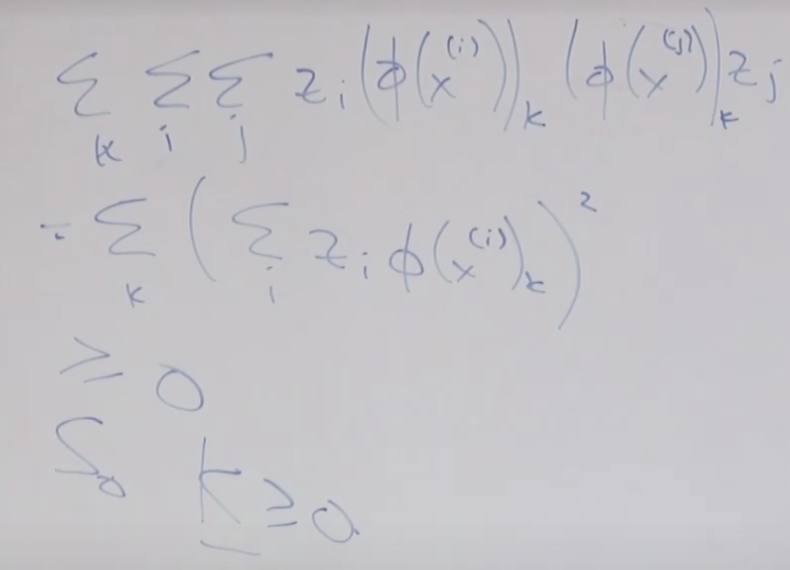 Σ_k Σ_i Σ_j z_i (ϕ(x^(i)))_k (ϕ(x^(j)))_k z_j
= Σ_k (Σ_i z_i ϕ(x^(i))_k)^2
≥ 0
So K ≥ 0.